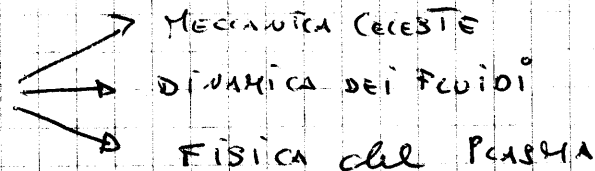 MECCANICA CELESTE
DINAMICA DEI FLUIDI
FISICA del PLASMA